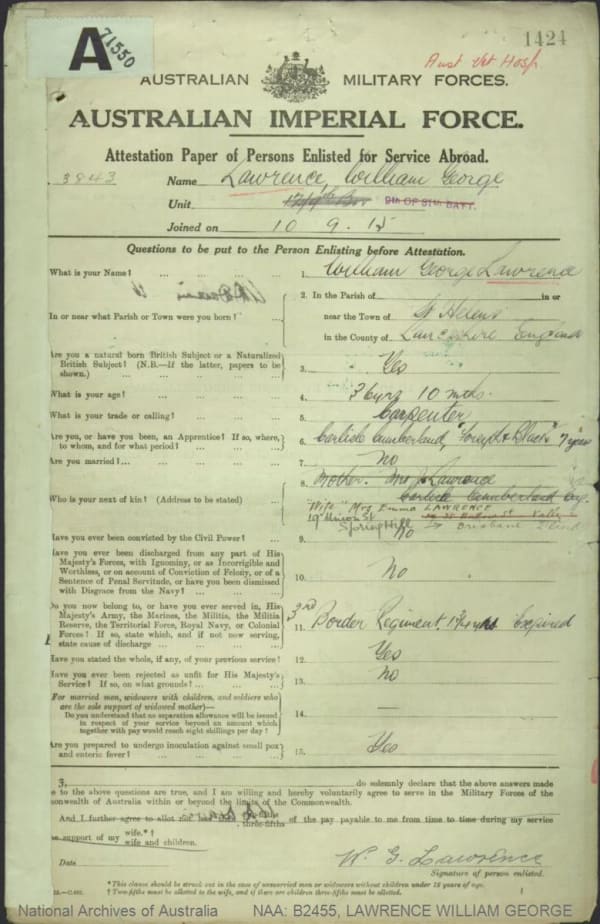 A
71550
1424
Aust Vet Hosp
AUSTRALIAN MILITARY FORCES.
AUSTRALIAN IMPERIAL FORCE.
Attestation Paper of Persons Enlisted for Service Abroad.
3843
Name Lawrence, William George
Unit 9TH OF 31TH BATT.
Joined on 10 9. 15
Questions to be put to the Person Enlisting before Attestation.
What is your Name? ... ... ... ... 1. William George Lawrence
In or near what Parish or Town were you born? ...
2. In the Parish of in or
near the Town of St Helens
in the County of Lancashire England
Are you a natural born British Subject or a Naturalized
British Subject? (N.B.—If the latter, papers to be
shown.) ... ... ... ... 3. Yes
What is your age? ... ... ... ... 4. 36 yrs 10 mths.
What is your trade or calling? ... ... ... 5. Carpenter
Are you, or have you been, an Apprentice? If so, where,
to whom, and for what period? ... ... ... 6. Carlisle Cumberland, 7 years
Are you married?... ... ... ... 7. No
Who is your next of kin? (Address to be stated) ...
8. Mother. Mrs J Lawrence
Carlisle Cumberland Eng.
"Wife" Mrs Emma LAWRENCE
19 Union St
Spring Hill → Brisbane
Have you ever been convicted by the Civil Power? ... 9. No
Have you ever been discharged from any part of His
Majesty's Forces, with Ignominy, or as Incorrigible and
Worthless, or on account of Conviction of Felony, or of a
Sentence of Penal Servitude, or have you been dismissed
with Disgrace from the Navy? ... ... 10. No
Do you now belong to, or have you ever served in, His
Majesty's Army, the Marines, the Militia, the Militia
Reserve, the Territorial Force, Royal Navy, or Colonial
Forces? If so, state which, and if not now serving,
state cause of discharge ... ... ... 11. 3rd Border Regiment. Expired
Have you stated the whole, if any, of your previous service? 12. Yes
Have you ever been rejected as unfit for His Majesty's
Service? If so, on what grounds? ... ... ... 13. No
(For married men, widowers with children, and soldiers who
are the sole support of widowed mother)—
Do you understand that no separation allowance will be issued
in respect of your service beyond an amount which
together with pay would reach eight shillings per day? 14. —
Are you prepared to undergo inoculation against small pox
and enteric fever? ... ... ... ... 15. Yes
3, do solemnly declare that the above answers made
e to the above questions are true, and I am willing and hereby voluntarily agree to serve in the Military Forces of the
onwealth of Australia within or beyond the limits of the Commonwealth.
And I further agree to allot three-fifths of the pay payable to me from time to time during my service
he support of my wife.*†
wife and children.
Date
W. G. Lawrence
Signature of person enlisted.
* This clause should be struck out in the case of unmarried men or widowers without children under 18 years of age.
† Two-fifths must be allotted to the wife, and if there are children three-fifths must be allotted.
National Archives of Australia NAA: B2455, LAWRENCE WILLIAM GEORGE